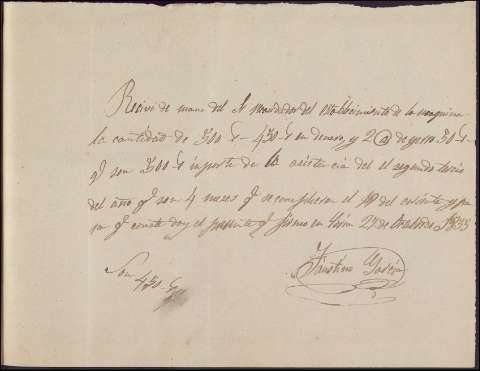 Recivi de mano del Sr Mandador del establecimiento de la maquina
la cantidad de 500 rs - 450 rs en dinero, y 2 @ de yerro 50 rs -
qe son 500 rs importe de la asistencia del el segundo tercio
del año qe son 4 meses qe se cumplieron el del corriente y pa
qe conste doy el presente qe firmo en 27 de Octubre
Faustino
Son 450 rs